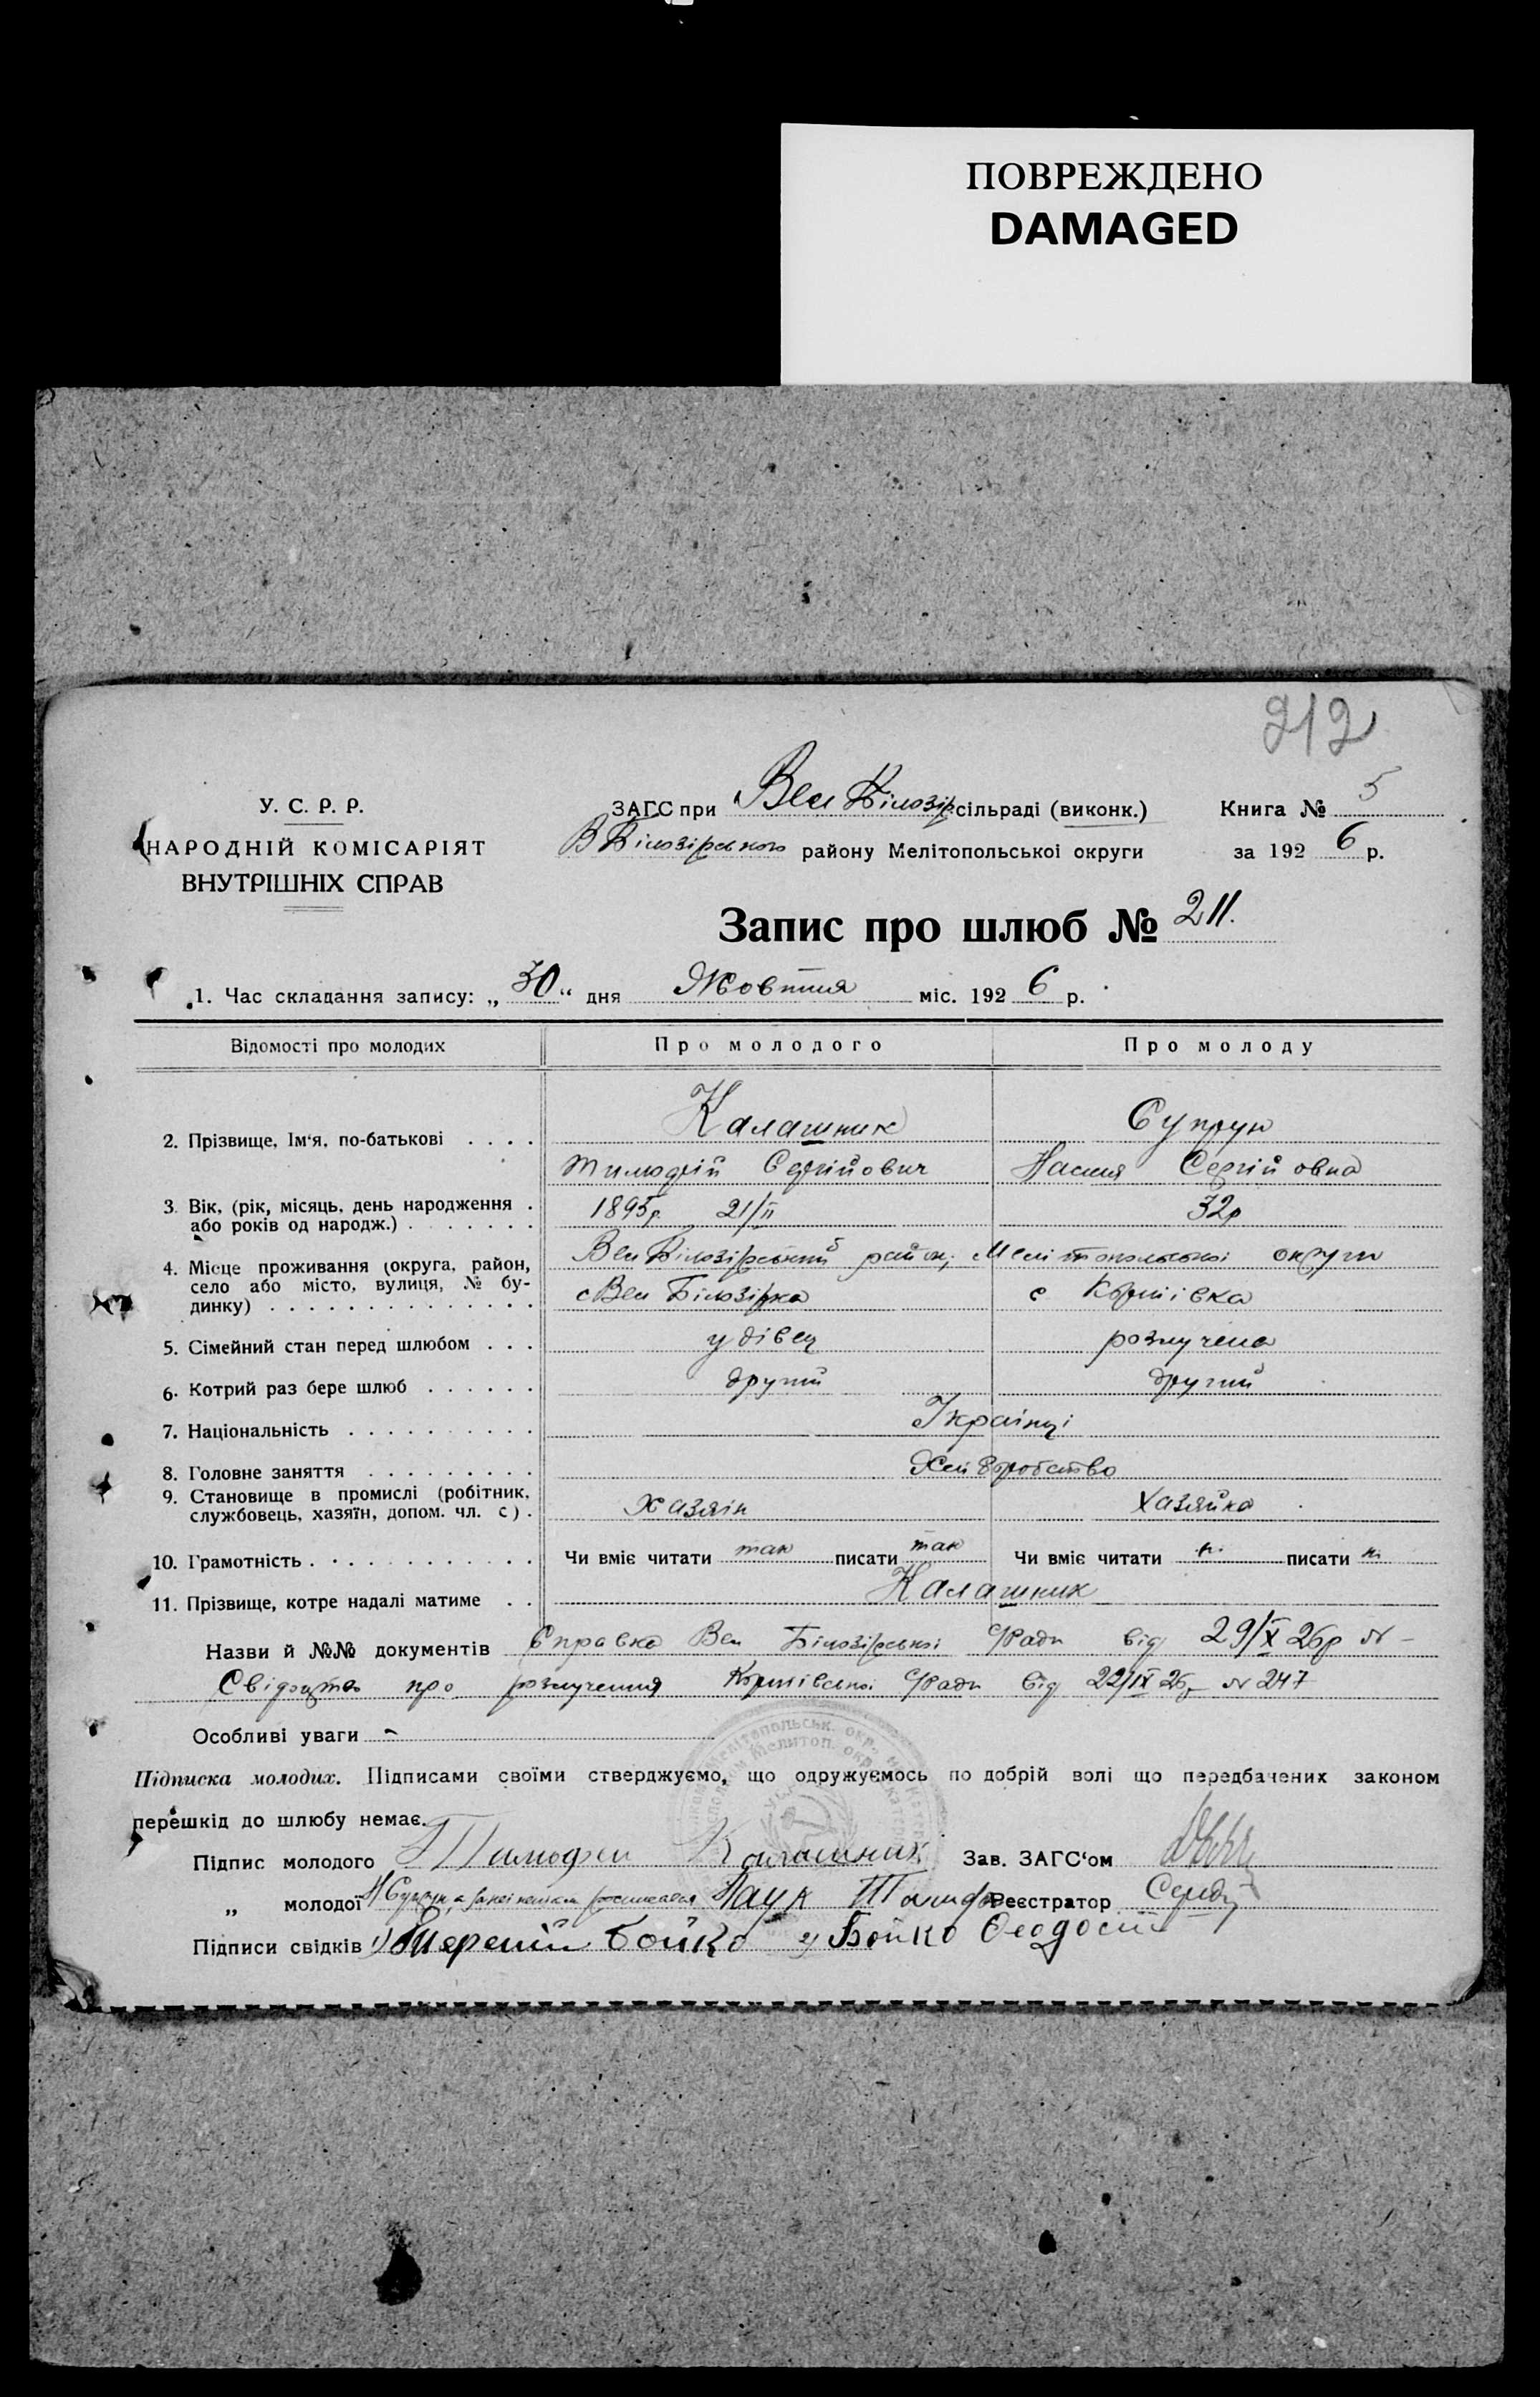 ПОВРЕЖДЕНО
DAMAGED
212
У. С. Р. Р.
НАРОДНІЙ КОМІСАРІЯТ
ВНУТРІШНІХ СПРАВ
ЗАГС при Вел Білозір сільраді (виконк.) Книга № 5
В Білозірського району Мелітопольської округи за 1926 р.
Запис про шлюб № 211.
1. Час складання запису: „30“ дня Жовтня міс. 1926 р.
Відомості про молодих Про молодого Про молоду
2. Прізвище, Ім'я, по-батькові . . . . Калашник Супрун
Тимофій Сергійович Настя Сергійовна
3. Вік, (рік, місяць, день народження . 1895р. 21/II 32р
або років од народж.) . . . . . . .
4. Місце проживання (округа, район, Вел Білозірський район, Мелітопольської округи
село або місто, вулиця, № бу-
динку) . . . . . . . . . . . . . . с Вел Білозірка с
5. Сімейний стан перед шлюбом . . . удівец розлучена
6. Котрий раз бере шлюб . . . . . . другий другий
7. Національність . . . . . . . . . . Українці
8. Головне заняття . . . . . . . . . Хліборобство
9. Становище в промислі (робітник,
службовець, хазяїн, допом. чл. с) . хазяін хазяйка
10. Грамотність . . . . . . . . . . . . Чи вміє читати так писати так Чи вміє читати н. писати н.
11. Прізвище, котре надалі матиме . . Калашник
Назви й №№ документів Справка Вел Білозірської с/Ради від 29/X 26р № -
Свідоцтво про розлучення с/Ради від 22/IX 26р № 247
Особливі уваги -
Підписка молодих. Підписами своїми стверджуємо, що одружуємось по добрій волі що передбачених законом
перешкід до шлюбу немає.
Підпис молодого Тимофей Калашник Зав. ЗАГС'ом
„ молодої Супрун Наук Реєстратор
Підписи свідків 1) Бойко 2) Бойко Феодосій